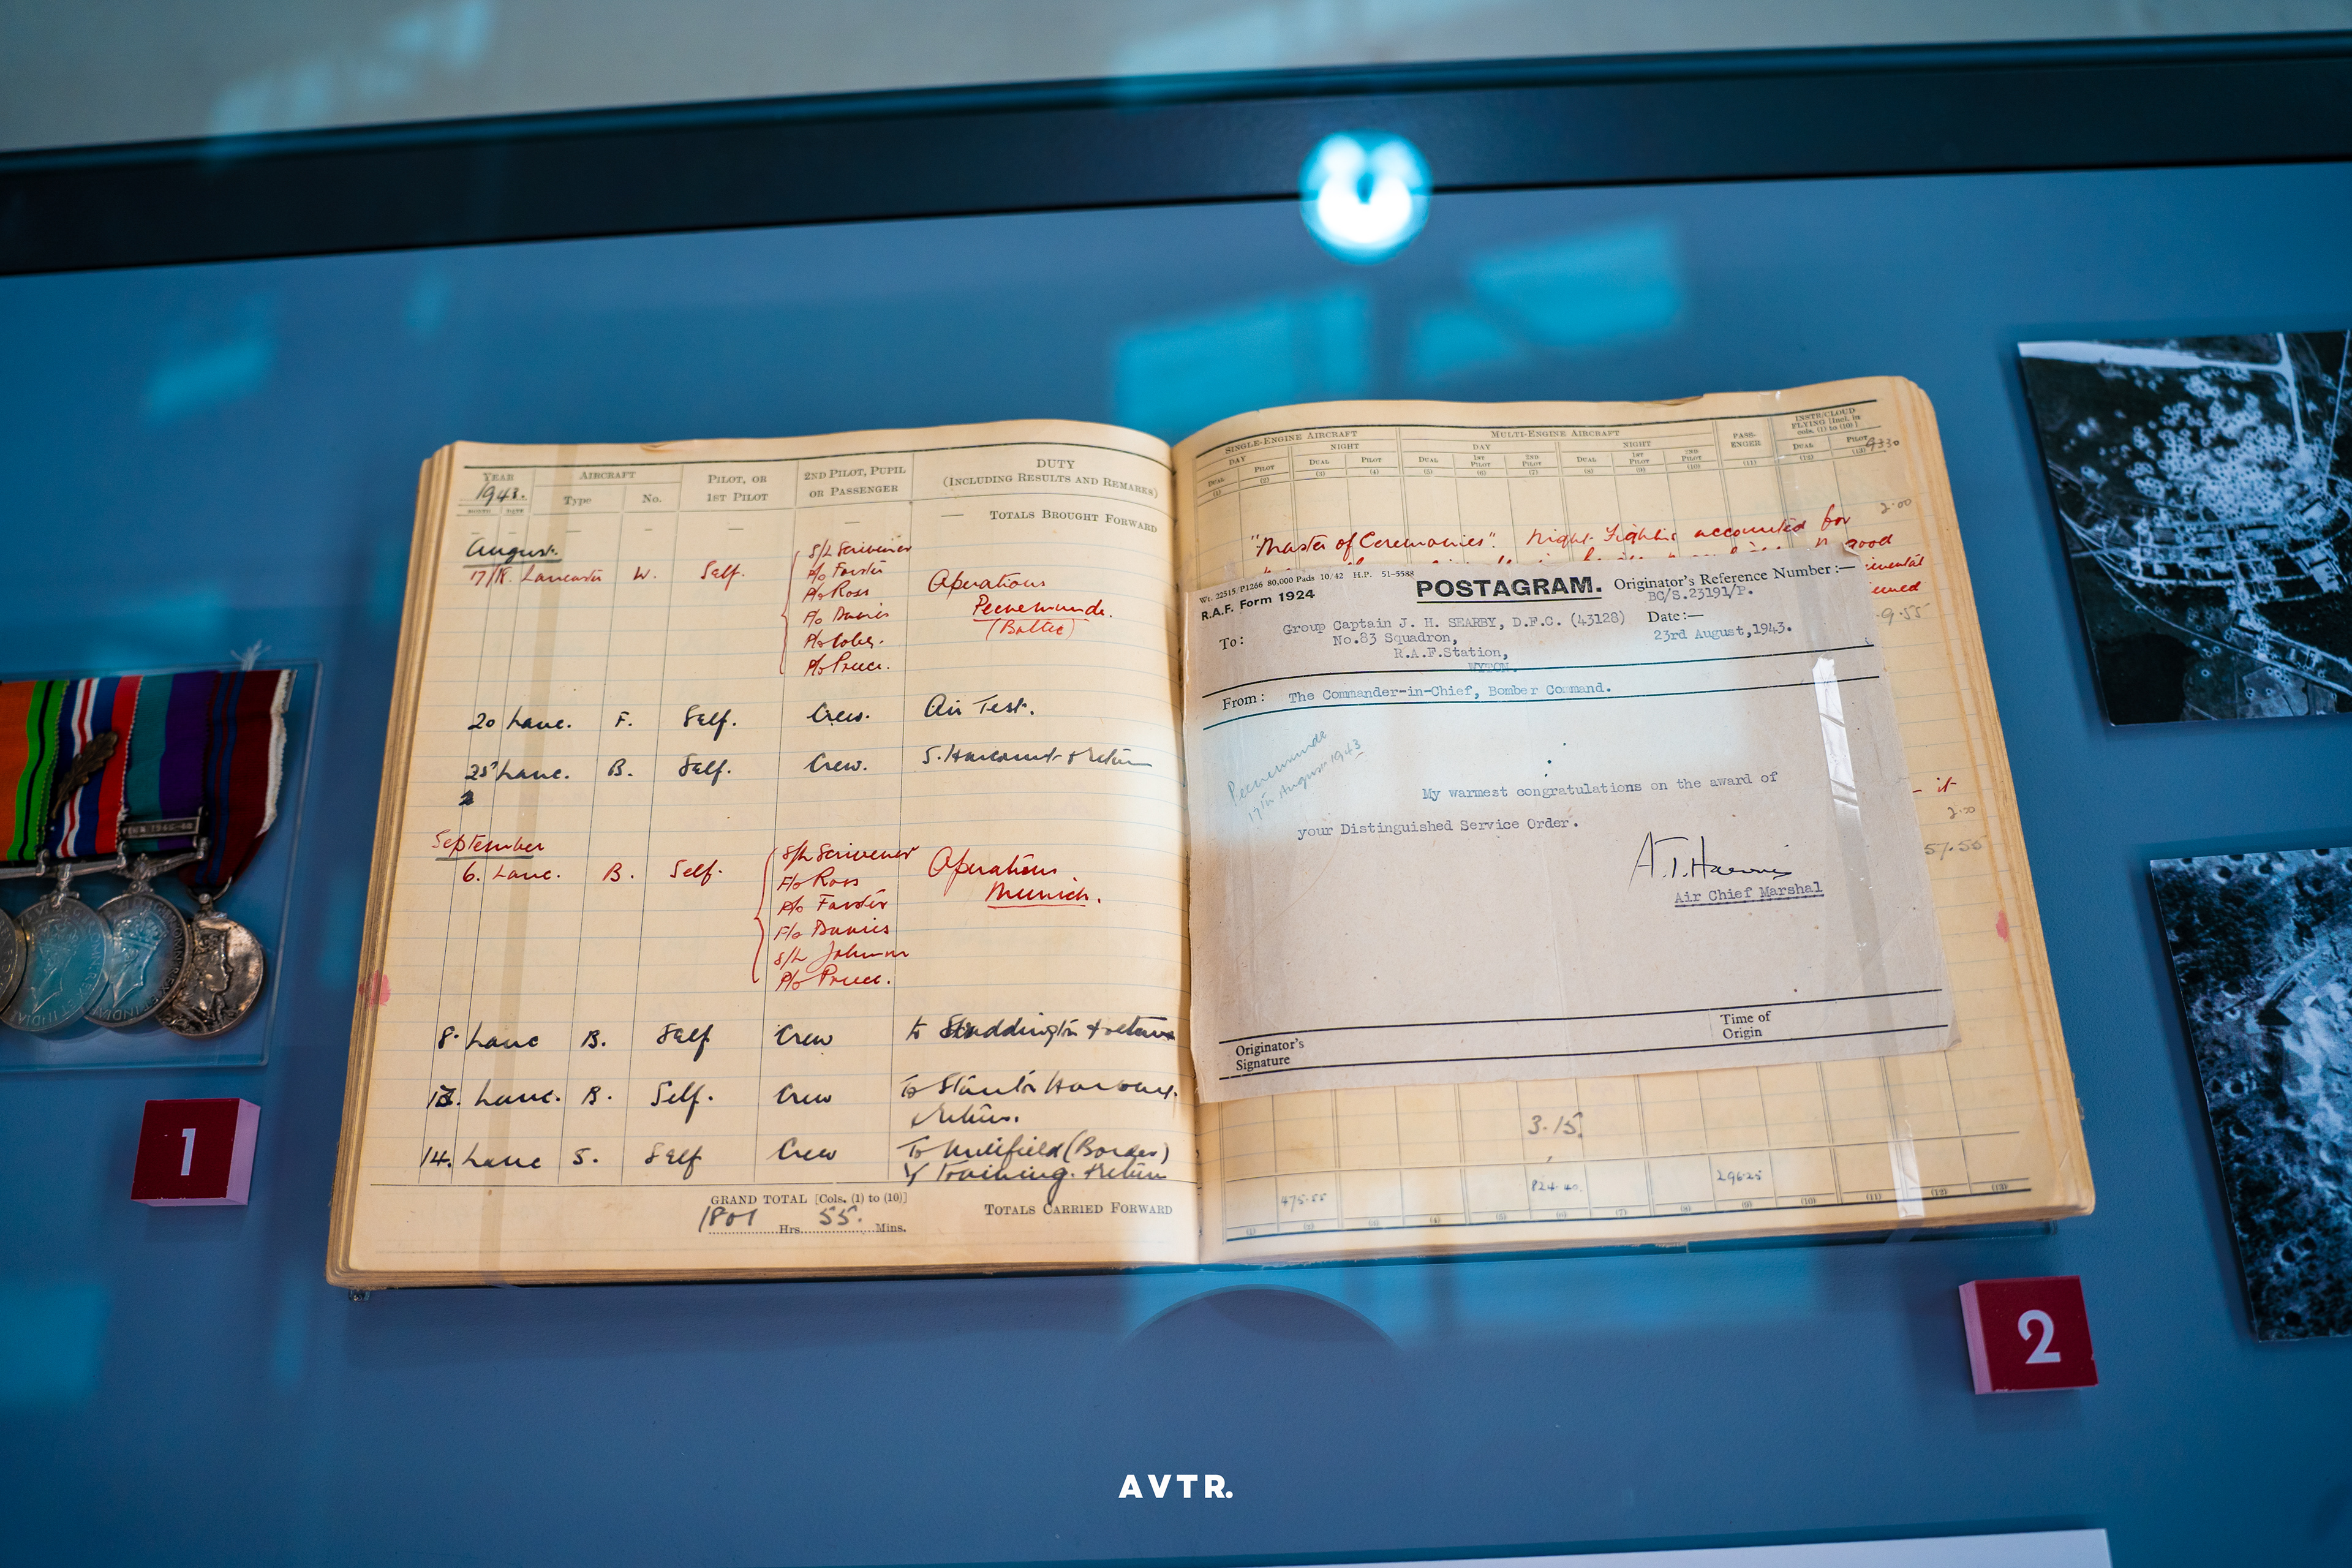 YEAR
1943.
MONTH DATE
AIRCRAFT
Type No.
PILOT, OR
1ST PILOT
2ND PILOT, PUPIL
OR PASSENGER
DUTY
(INCLUDING RESULTS AND REMARKS)
TOTALS BROUGHT FORWARD
August.
17/18. Lancaster W. Self. S/L Scrivener Operations
P/o Forster Peenemunde.
P/o Ross (Baltic)
P/o Davies
P/o Coley.
P/o Preece.
20 Lanc. F. Self. Crew. Air Test.
25 Lanc. B. Self. Crew. S. Harcourt & return
September
6. Lanc. B. Self. S/L Scrivener Operations
F/o Ross Munich.
P/o Forster
F/o Davies
S/L Johnson
P/o Preece.
8. Lanc B. Self Crew to &
13. Lanc. B. Self. Crew To Stanton Harcourt.
return.
14. Lanc S. Self Crew To Millfield (Borders)
Training. & Return
GRAND TOTAL [Cols. (1) to (10)]
1801 Hrs. 55. Mins.
TOTALS CARRIED FORWARD
SINGLE-ENGINE AIRCRAFT MULTI-ENGINE AIRCRAFT PASS-
ENGER INSTR/CLOUD
FLYING [Incl. in
cols. (1) to (10)]
DAY NIGHT DAY NIGHT
DUAL PILOT DUAL PILOT DUAL 1ST
PILOT 2ND
PILOT DUAL 1ST
PILOT 2ND
PILOT DUAL PILOT
(1) (2) (3) (4) (5) (6) (7) (8) (9) (10) (11) (12) (13)
2.00
"Master of Ceremonies". Night Fighters accounted for
good
9.55
Wt. 22515/P1266 80,000 Pads 10/42 H.P. 51-5588
R.A.F. Form 1924
POSTAGRAM.
Originator's Reference Number :—
BC/S.23191/P.
To: Group Captain J. H. SEARBY, D.F.C. (43128)
No.83 Squadron,
R.A.F.Station,
WYTON.
Date:—
23rd August,1943.
From: The Commander-in-Chief, Bomber Command.
Peenemunde
17th August 1943
My warmest congratulations on the award of
your Distinguished Service Order.
A.T. Harris
Air Chief Marshal
Originator's
Signature
Time of
Origin
it
2.00
57.55
3.15.
475.55 824.40. 296.25
(1) (2) (3) (4) (5) (6) (7) (8) (9) (10) (11) (12) (13)
1
2
AVTR.